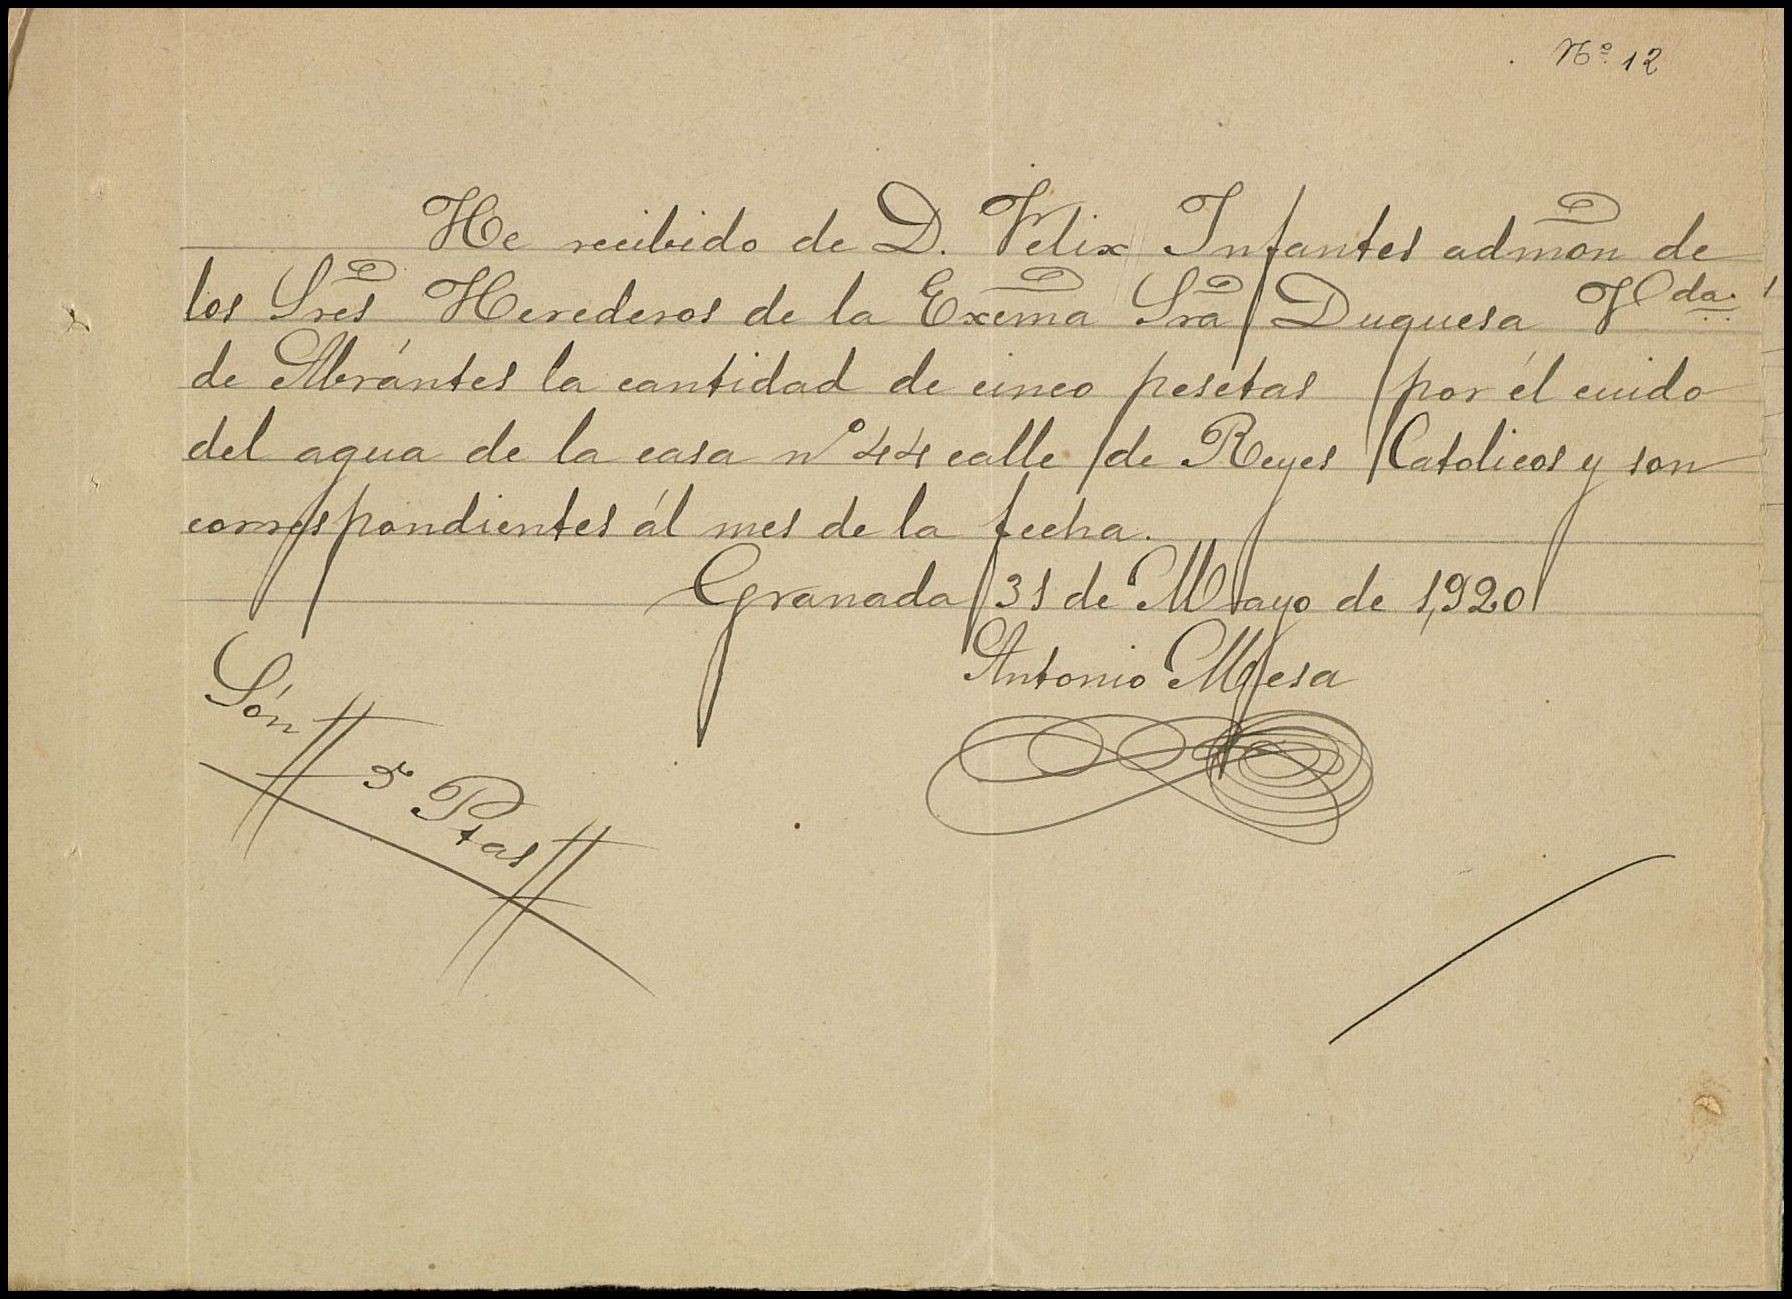 Nº 12
He recibido de D. Felix Infantes admõn de
los Sres Herederos de la Excma Sra Duquesa Vda.
de Abrántes la cantidad de cinco pesetas por él cuido
del agua de la casa nº 44 calle de Reyes Catolicos y son
correspondientes ál mes de la fecha.
Granada 31 de Mayo de 1,920
Antonio Mesa
Són # 5 Ptas #